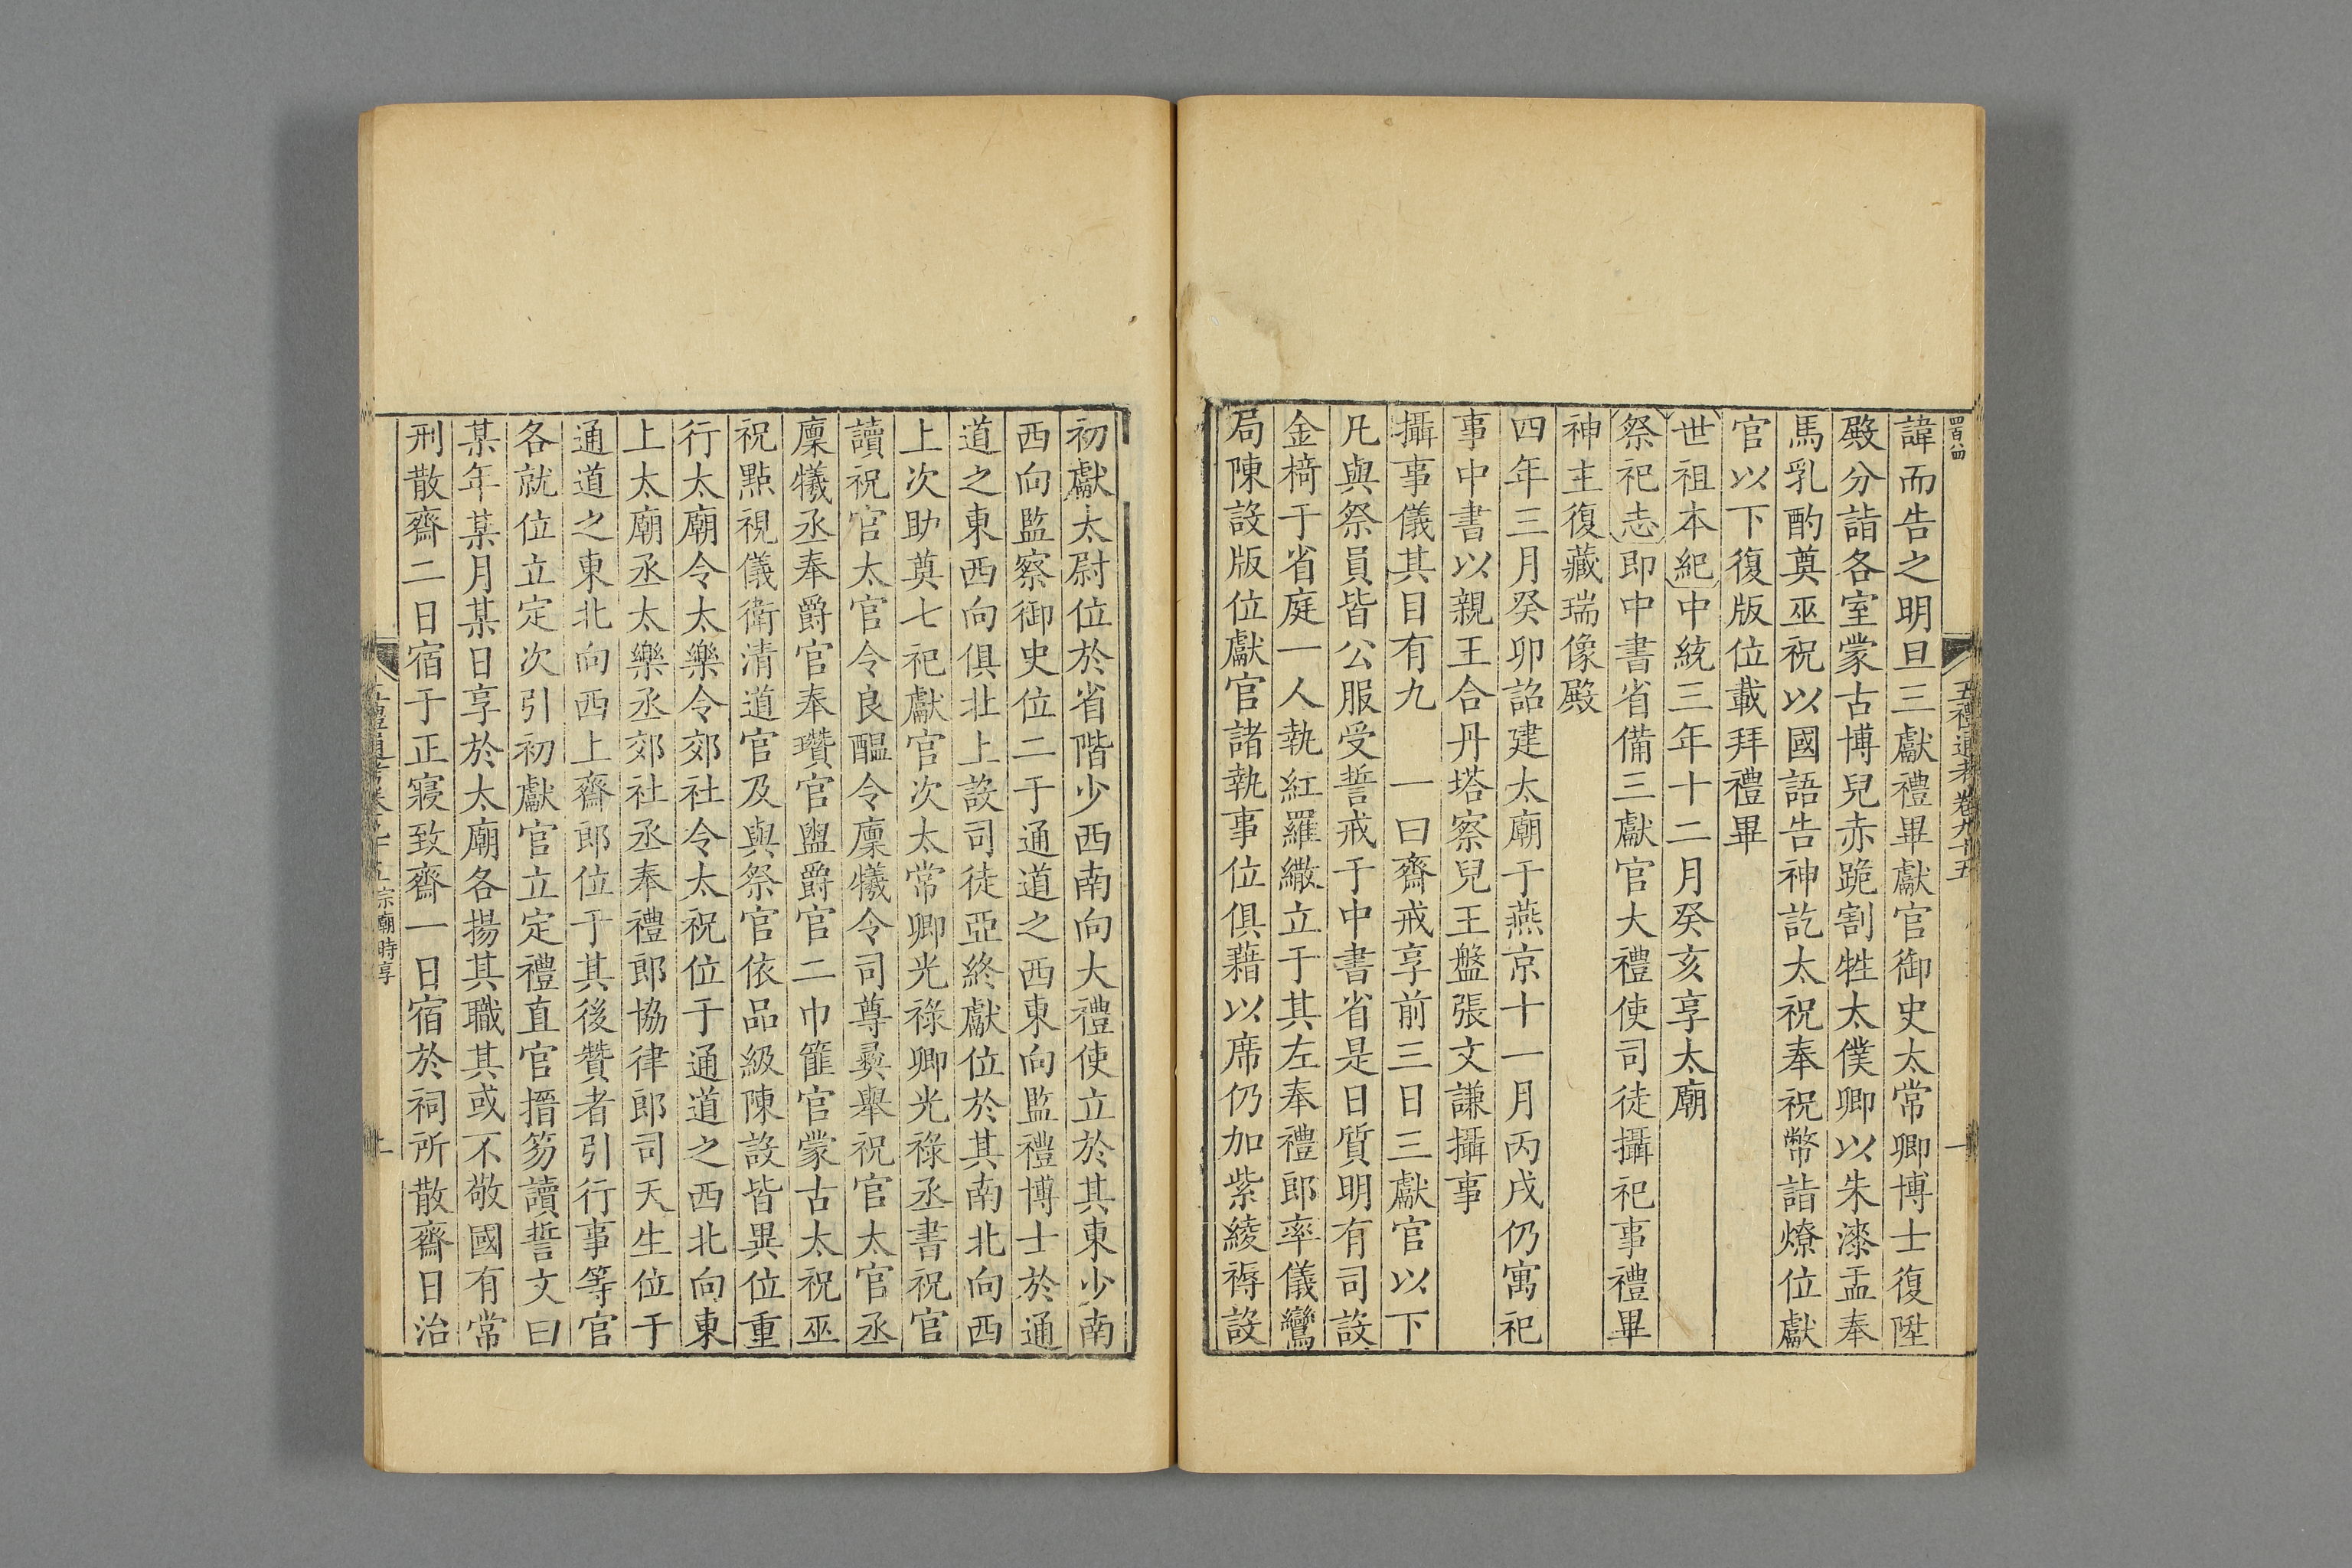 四百八四
五禮通考卷九十五
一
諱而告之明旦三獻禮畢獻官御史太常卿博士復陞
殿分詣各室蒙古博兒赤跪割牲太僕卿以朱漆盂奉
馬乳酌奠巫祝以國語告神訖太祝奉祝幣詣燎位獻
官以下復版位載拜禮畢
世祖本紀中統三年十二月癸亥享太廟
祭祀志即中書省備三獻官大禮使司徒攝祀事禮畢
神主復藏瑞像殿
四年三月癸卯詔建太廟于燕京十一月丙戌仍寓祀
事中書以親王合丹塔察兒王盤張文謙攝事
攝事儀其目有九 一曰齋戒享前三日三獻官以下
凡與祭員皆公服受誓戒于中書省是日質明有司設
金椅于省庭一人執紅羅繖立于其左奉禮郎率儀鸞
局陳設版位獻官諸執事位俱藉以席仍加紫綾褥設
初獻太尉位於省階少西南向大禮使立於其東少南
西向監察御史位二于通道之西東向監禮博士於通
道之東西向俱北上設司徒亞終獻位於其南北向西
上次助奠七祀獻官次太常卿光祿卿光祿丞書祝官
讀祝官太官令良醞令廩犧令司尊彝舉祝官太官丞
廩犧丞奉爵官奉瓚官盥爵官二巾篚官蒙古太祝巫
祝點視儀衛清道官及與祭官依品級陳設皆異位重
行太廟令太樂令郊社令太祝位于通道之西北向東
上太廟丞太樂丞郊社丞奉禮郎協律郎司天生位于
通道之東北向西上齋郎位于其後贊者引行事等官
各就位立定次引初獻官立定禮直官搢笏讀誓文曰
某年某月某日享於太廟各揚其職其或不敬國有常
刑散齋二日宿于正寢致齋一日宿於祠所散齋日治
宗廟時享